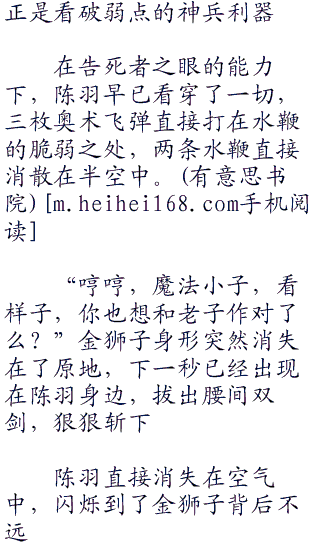 正是看破弱点的神兵利器
在告死者之眼的能力
下，陈羽早已看穿了一切，
三枚奥术飞弹直接打在水鞭
的脆弱之处，两条水鞭直接
消散在半空中。(有意思书
院)[m.heihei168.com手机阅
读]
“哼哼，魔法小子，看
样子，你也想和老子作对了
么？”金狮子身形突然消失
在了原地，下一秒已经出现
在陈羽身边，拔出腰间双
剑，狠狠斩下
陈羽直接消失在空气
中，闪烁到了金狮子背后不
远